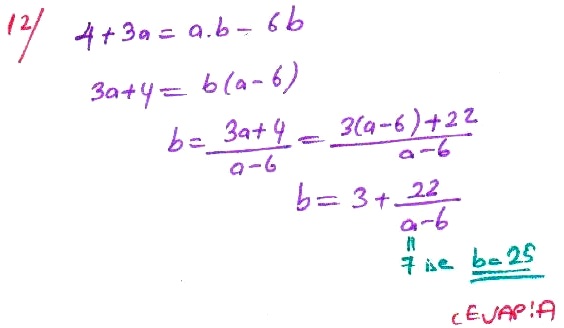 12/ 4+3a = a.b - 6b
3a+4 = b(a-6)
b = 3a+4/a-6 = 3(a-6)+22/a-6
b = 3 + 22/a-6
" 7 ise b=25
CEVAP:A